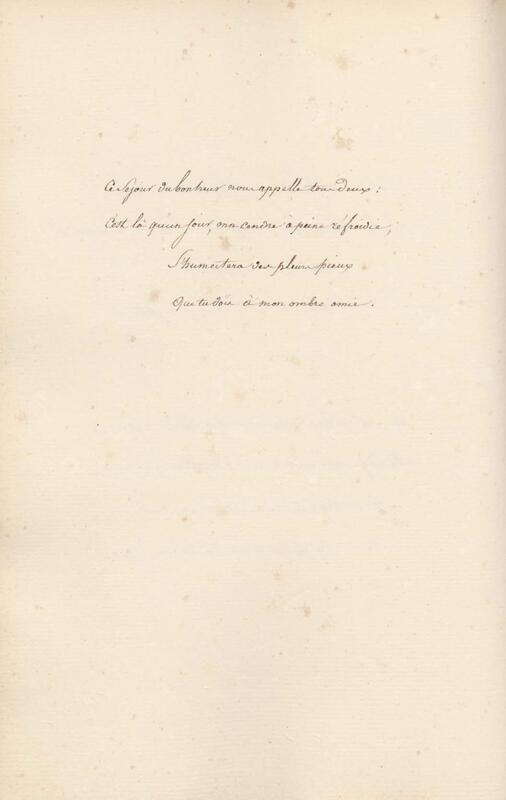 Ce Séjour du bonheur nous appelle tous deux :
C'est là qu'un jour, ma cendre à peine réfroidie,
S'humectera des pleurs pieux
Que tu dois à mon ombre amie.